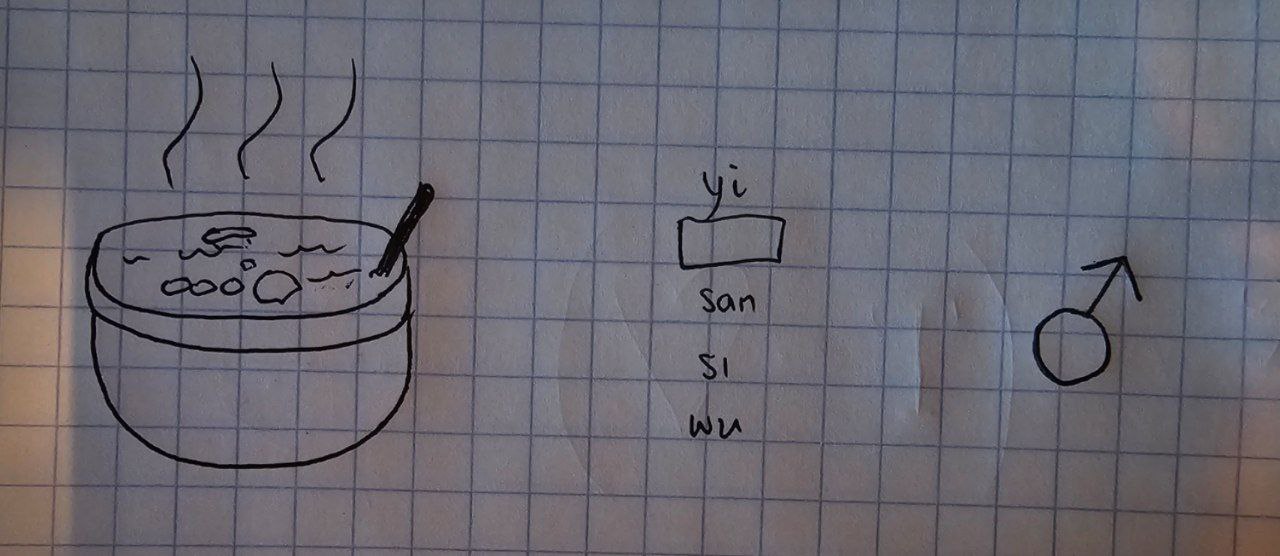 yi
san
si
wu